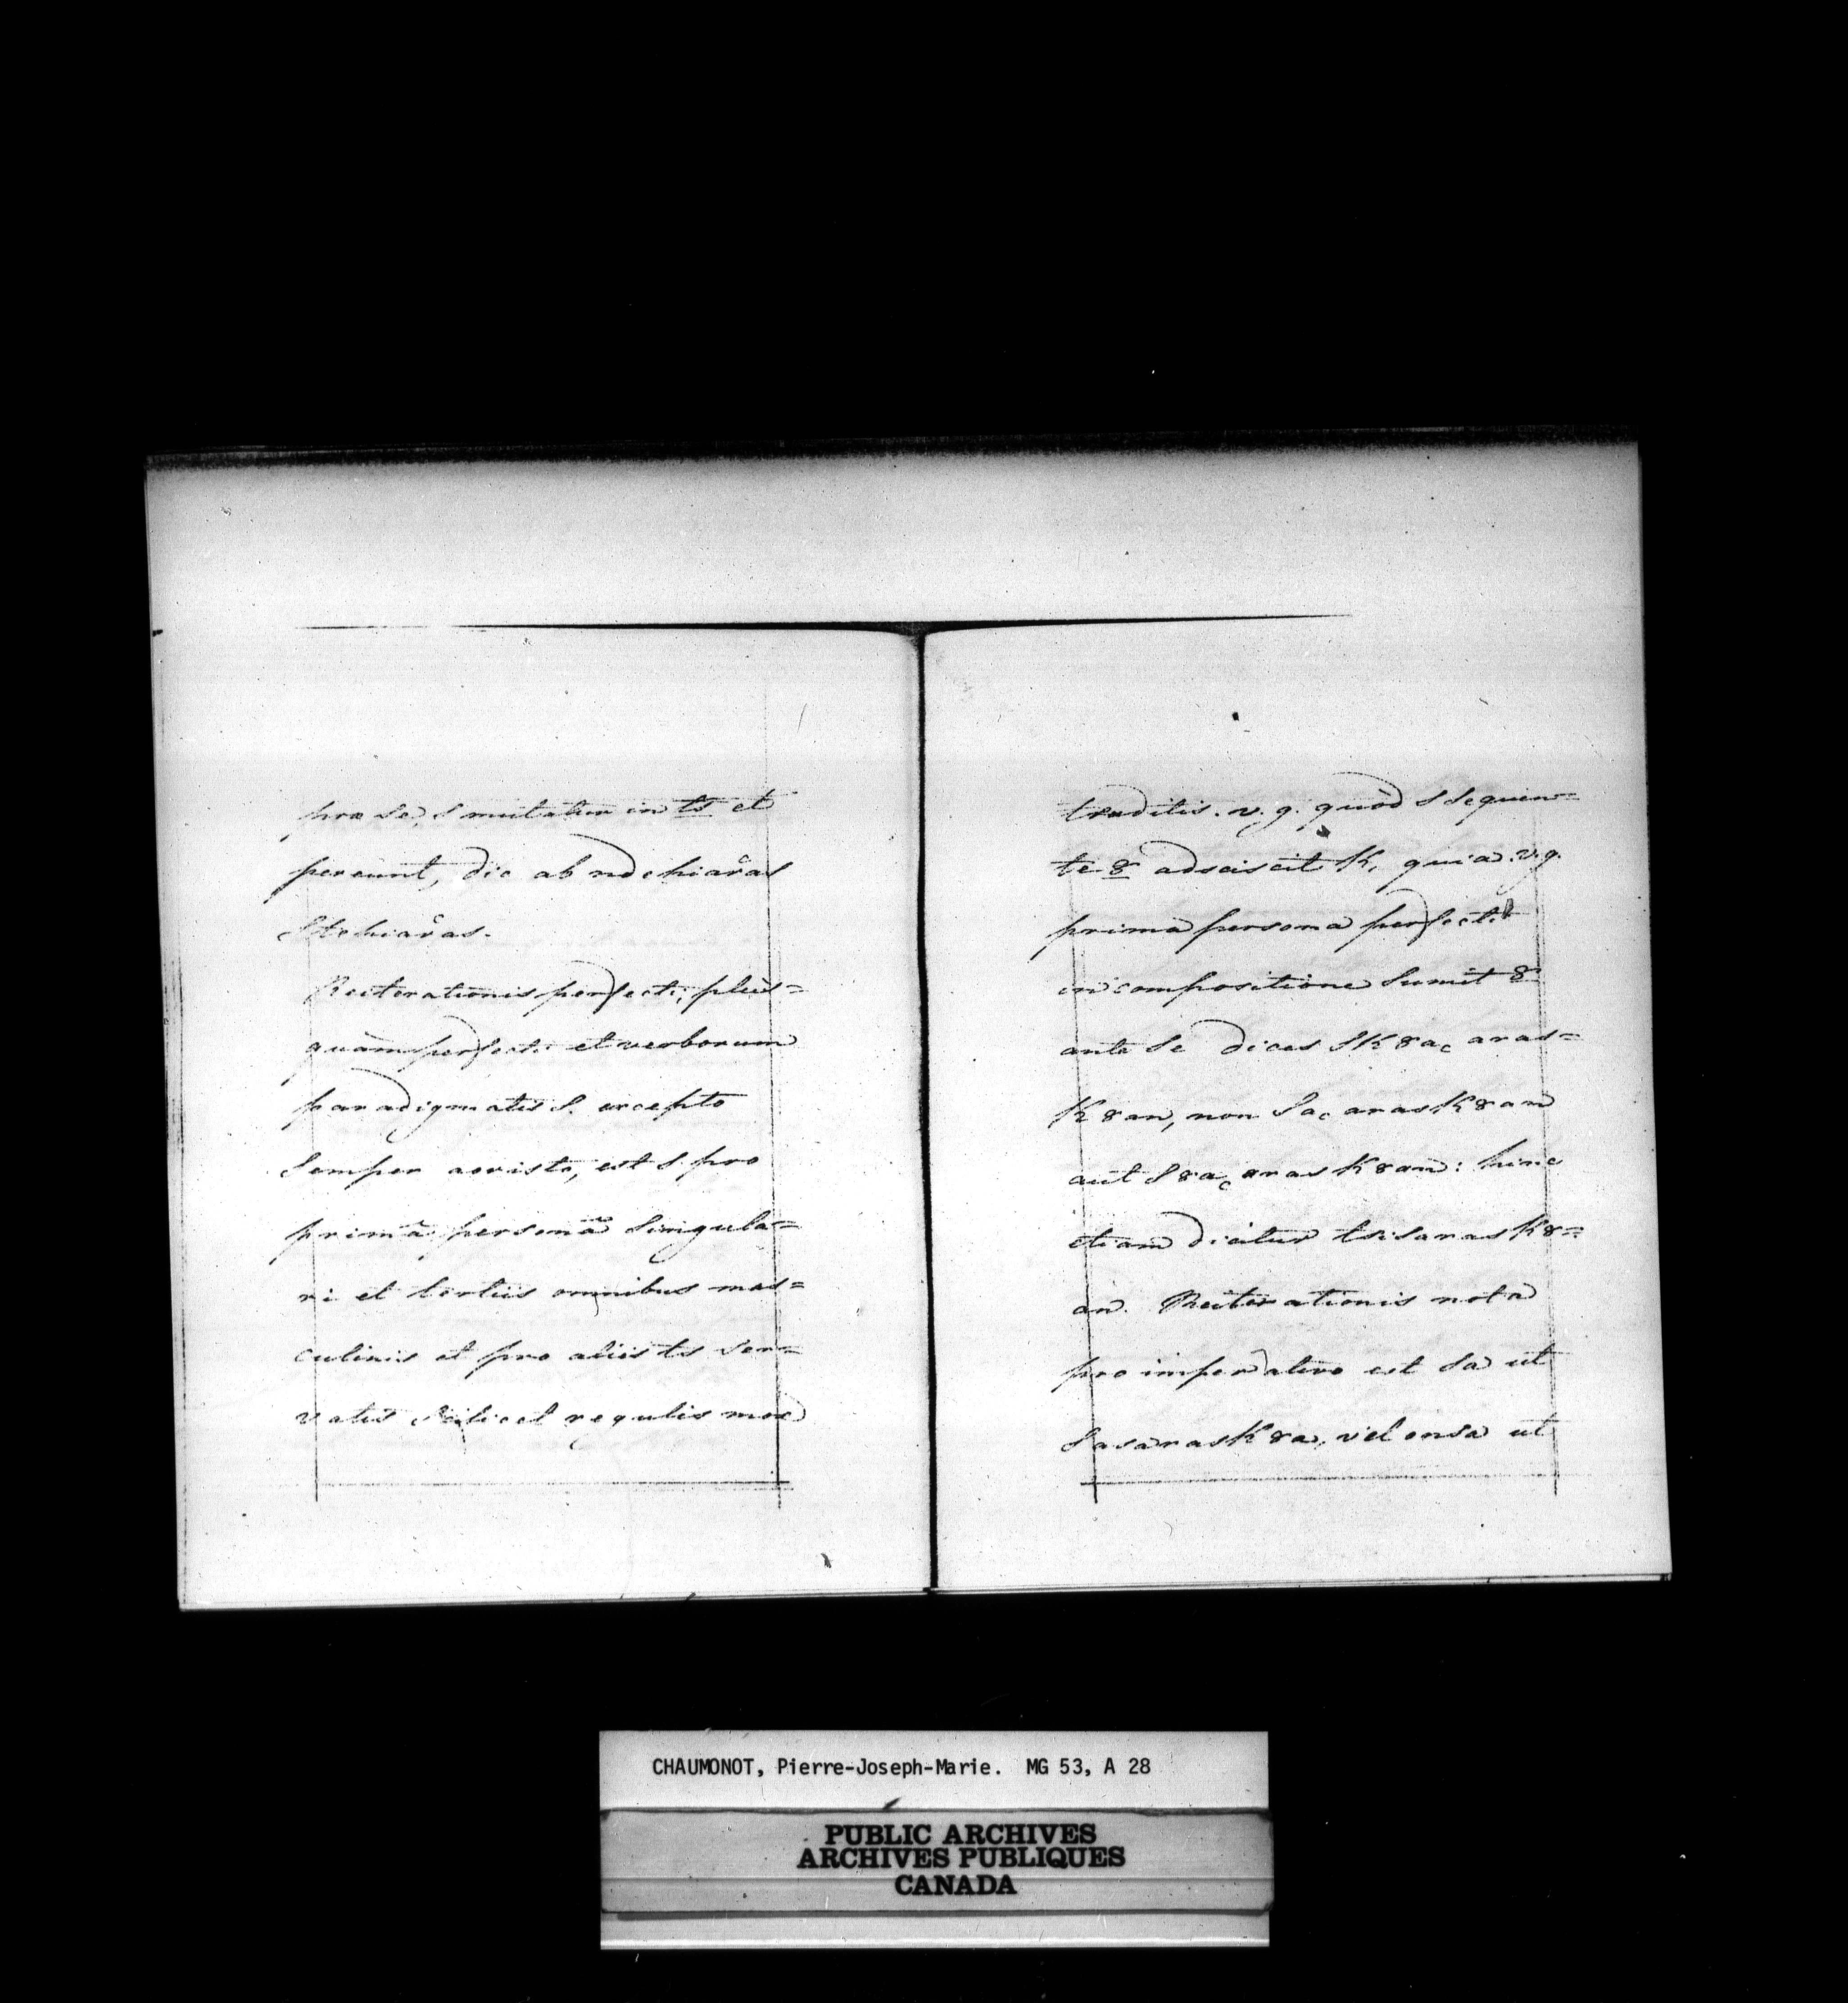 pro se, s mutatur in ts et
pereunt, dic ab ndchiaras
stchiaras.
Reiterationis perfecti, plùs=
quàmperfecti et verborum
paradigmatis S. excepto
semper aoristo, est s. pro
primâ personâ singula=
ri et tertiis omnibus mas=
culinis et pro aliis ts ser=
vatis scilicet regulis mox
traditis. v. g. quòd s sequen=
te 8 adsciscit K, quia v. g.
prima persona perfecti
in compositione sumit 8
ante se dices sK8a aras=
K8an, non sa arasK8an
aut s8a arasK8an: hinc
etiam dicitur tsisarasK8=
an. Reiterationis nota
pro imperativo est sa ut
sasarasK8a, vel onsa ut
CHAUMONOT, Pierre-Joseph-Marie. MG 53, A 28
PUBLIC ARCHIVES
ARCHIVES PUBLIQUES
CANADA